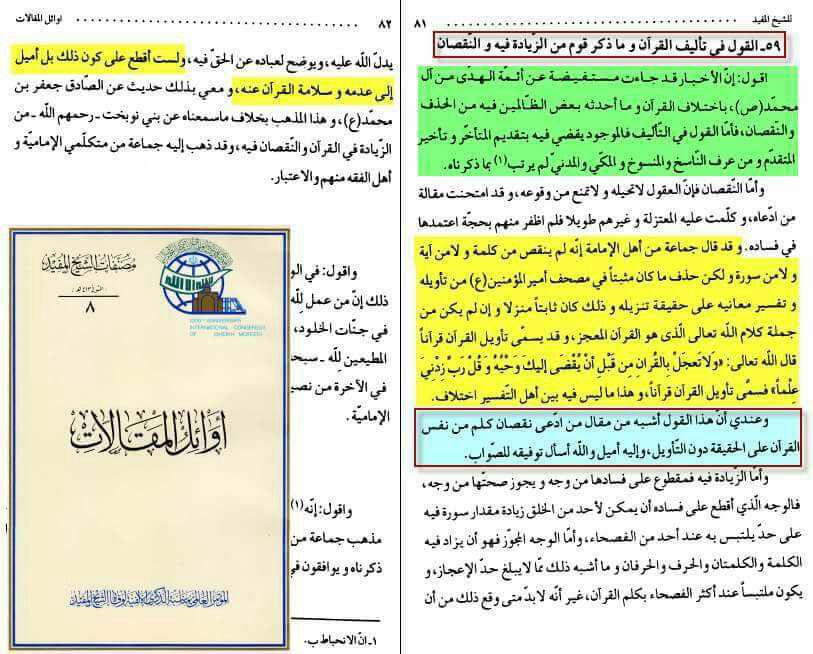 للشيخ المفيد ٨١
٥٩ـ القول في تأليف القرآن و ما ذكر قوم من الزّيادة فيه و النّقصان
اقول: إنّ الأخبار قد جاءت مستفيضة عن أئمّة الهدى من آل
محمّد(ص)، باختلاف القرآن و ما أحدثه بعض الظّالمين فيه من الحذف
والنّقصان، فأمّا القول في التّأليف فالموجود يقضي فيه بتقديم المتأخّر و تأخير
المتقدّم و من عرف النّاسخ والمنسوخ و المكّي والمدنيّ لم يرتب(١) بما ذكرناه.
وأمّا النّقصان فإنّ العقول لاتحيله و لاتمنع من وقوعه، و قد امتحنت مقالة
من ادّعاه، و كلّمت عليه المعتزلة و غيرهم طويلا فلم اظفر منهم بحجّة اعتمدها
في فساده. و قد قال جماعة من أهل الإمامة إنّه لم ينقص من كلمة و لامن أية
و لامن سورة و لكن حذف ما كان مثبتاً في مصحف أمير المؤمنين(ع) من تأويله
و تفسير معانيه على حقيقة تنزيله و ذلك كان ثابتاً منزلا و إن لم يكن من
جملة كلام اللّه تعالى الّذى هو القرآن المعجز، و قد يسمّى تأويل القرآن قرآناً
قال اللّه تعالى: «وَلاَتَعجَل بِالقُرانِ مِن قَبلِ أَنْ يُقْضَى إليكَ وَحْيُهُ وَ قُلْ رَبِّ زِدْنِي
عِلْماً» فسمّى تأويل القرآن قرآناً، و هذا ما ليس فيه بين أهل التّفسير اختلاف.
وعندي أنّ هذا القول أشبه من مقال من ادّعى نقصان كلم من نفس
القرآن على الحقيقة دون التّأويل، وإليه أميل واللّه أسأل توفيقه للصّواب.
وأمّا الزّيادة فيه فمقطوع على فسادها من وجه و يجوز صحّتها من وجه،
فالوجه الّذي أقطع على فساده أن يمكن لأحد من الخلق زيادة مقدار سورة فيه
على حدّ يلتبس به عند أحد من الفصحاء، وأمّا الوجه المجوّز فهو أن يزاد فيه
الكلمة والكلمتان والحرف والحرفان و ما أشبه ذلك ممّا لايبلغ حدّ الإعجاز، و
يكون ملتبساً عند أكثر الفصحاء بكلم القرآن، غير أنّه لابدّ متى وقع ذلك من أن
٨٢ اوائل المقالات
يدلّ اللّه عليه، ويوضح لعباده عن الحقّ فيه، ولست أقطع على كون ذلك بل أميل
إلى عدمه و سلامة القرآن عنه، و معي بذلك حديث عن الصّادق جعفر بن
محمّد(ع)، و هذا المذهب بخلاف ماسمعناه عن بني نوبخت ـ رحمهم اللّه ـ من
الزّيادة في القرآن والنّقصان فيه، وقد ذهب إليه جماعة من متكلّمي الإماميّة و
أهل الفقه منهم والاعتبار.
واقول: في الو
ذلك إنّ من عمل للّه
في جنّات الخلود،
المطيعين للّه ـ سبحا
في الآخرة من نصي
الإماميّة.
واقول: إنّه(١)
مذهب جماعة من
ذكرناه و يوافقون في
١ـ انّ الانحباط ب.
مصنفات الشيخ المفيد
٨
1000th ANNIVERSARY
INTERNATIONAL CONGRESS
OF SHEIKH MOFEED
أوائل المقالات
المؤتمر العالمي بمناسبة الذكرى الألفية لوفاة الشيخ المفيد